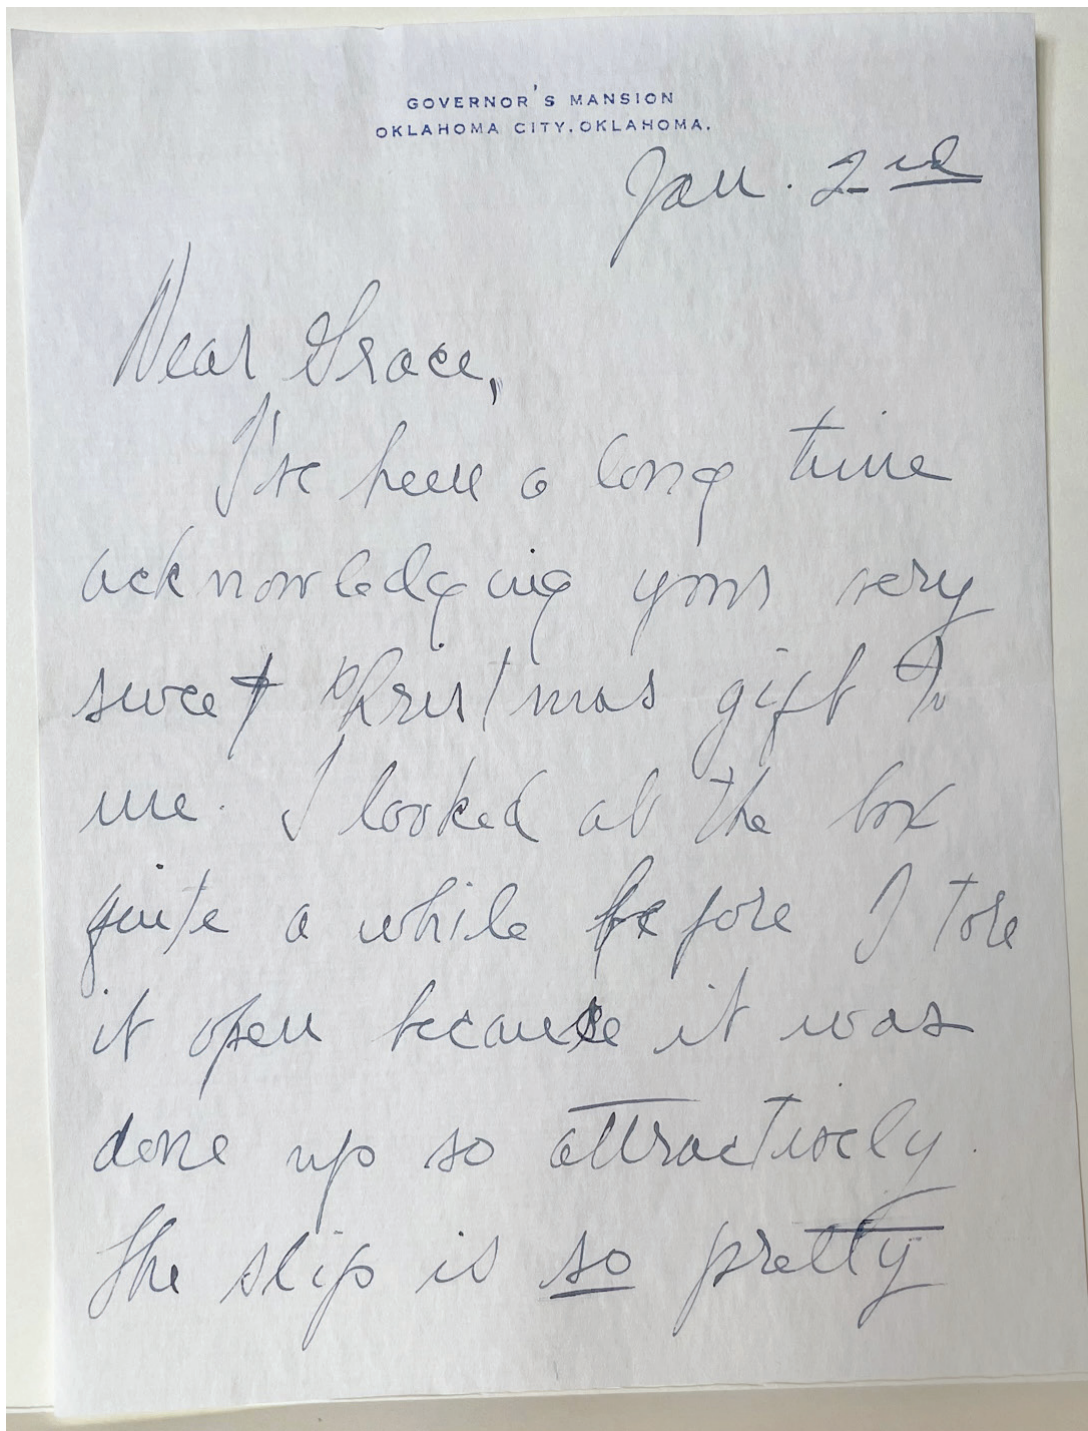 GOVERNOR'S MANSION
OKLAHOMA CITY, OKLAHOMA.
Jan. 2nd
Dear Grace,
I've been a long time
acknowledging your very
sweet Christmas gift to
me. I looked at the box
quite a while before I tore
it open because it was
done up so attractively.
The slip is so pretty